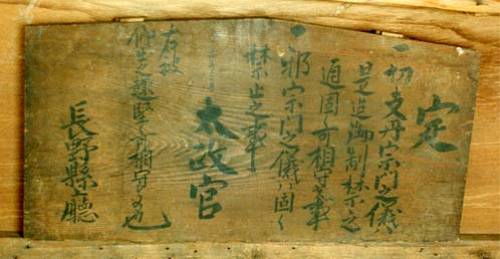 定
一切支丹宗門之儀
是迄御制禁之
通固ク可相守事
一邪宗門之儀ハ固ク
禁止之事
太政官
右被
仰出之趣堅可相守者也
長野縣廳